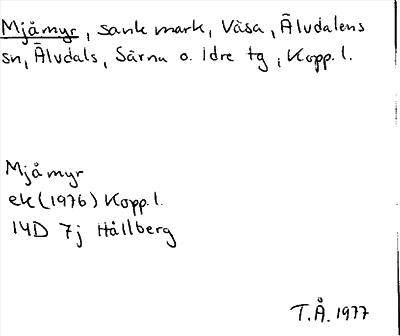 Mjåmyr, sank mark, Väsa, Älvdalens
sn, Älvdals, Särna o. Idre tg, Kopp. l.
Mjåmyr
ek (1976) Kopp. l.
14D 7j Hållberg
T.Å. 1977